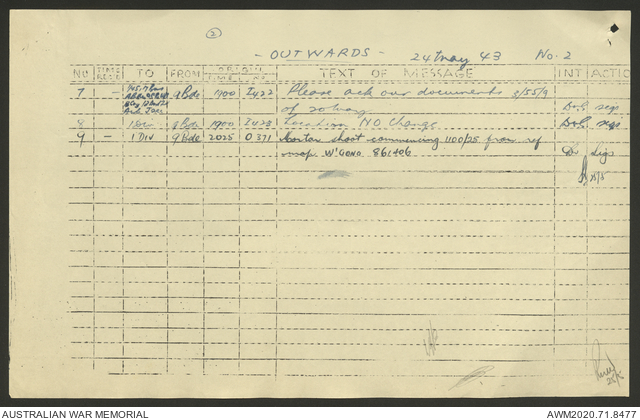 ②
- OUTWARDS - 24 May 43 No. 2
NO TIME TO FROM ORIGIN TEXT OF MESSAGE INT ACTION
TIME NO.
7 - 9 Bde 1700 I422 Please ack our documents 3/55/9
of 20 May D.R. sigs
8 1 Div 9 Bde 1900 I423 Location NO Change D.R. sigs
9 - 1 DIV 9 Bde 2025 O371 Mortar shoot commencing 1100/25 from ref
map W'GONG 861406 sigs
25/5
AUSTRALIAN WAR MEMORIAL AWM2020.71.8477